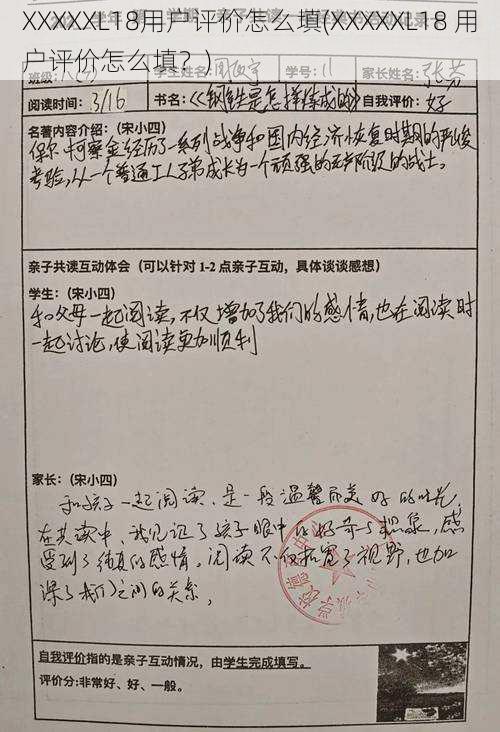 XXXXXL18用户评价怎么填(XXXXXL18 用
户评价怎么填？)
班级：
学生姓名：
学号：11
家长姓名：
阅读时间：3/16
书名：《钢铁是怎样炼成的》
自我评价：好
名著内容介绍：（宋小四）
保尔·柯察金经历了一系列战争和国内经济恢复时期的严峻
考验，从一个普通工人子弟成长为一个顽强的无产阶级的战士。
亲子共读互动体会（可以针对 1-2 点亲子互动，具体谈谈感想）
学生：（宋小四）
和父母一起阅读，不仅增加了我们的感情，也在阅读时
一起讨论，使阅读更加顺利
家长：（宋小四）
和孩子一起阅读，是一段温馨而美好的时光，
在共读中，我见证了孩子眼中的好奇与想象，感
受到了纯真的感情。阅读不仅拓宽了视野，也加
深了我们之间的关系。
自我评价指的是亲子互动情况，由学生完成填写。
评价分:非常好、好、一般。